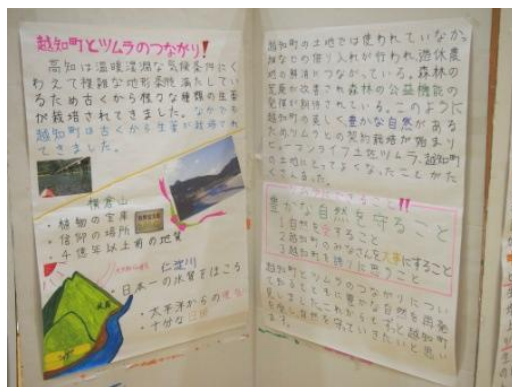 越知町とツムラのつながり!
高知は温暖湿潤な気候条件にく
わえて複雑な地形条件を満たしてい
るため古くから様々な種類の生薬
が栽培されてきました。なかでも
越知町は古くから生薬が栽培され
てきました。
横倉山
・植物の宝庫
・信仰の場所
・4億年以上前の地質
仁淀川
・日本一の水質をほこる
・太平洋からの
十分な日照
越知町の土地では使われていなか
畑などの借り入れが行われ、遊休農
地の解消につながっている。森林の
荒廃が改善され森林の公益機能の
発揮が期待されている。このように
越知町の美しく豊かな自然がある
ためツムラとの契約栽培が始まり
ヒューマンライフ土佐、ツムラ、越知町
の土地にとってよくなったことがた
くさんあった。
豊かな自然を守ること
1自然を愛すること
2越知町のみなさんを大事にすること
3越知町を誇りに思うこと
越知町とツムラのつながりについ
て知るとともに豊かな自然を再発
見しました。これからもずっと越知町
自然を守っていきたいと思い
ます。